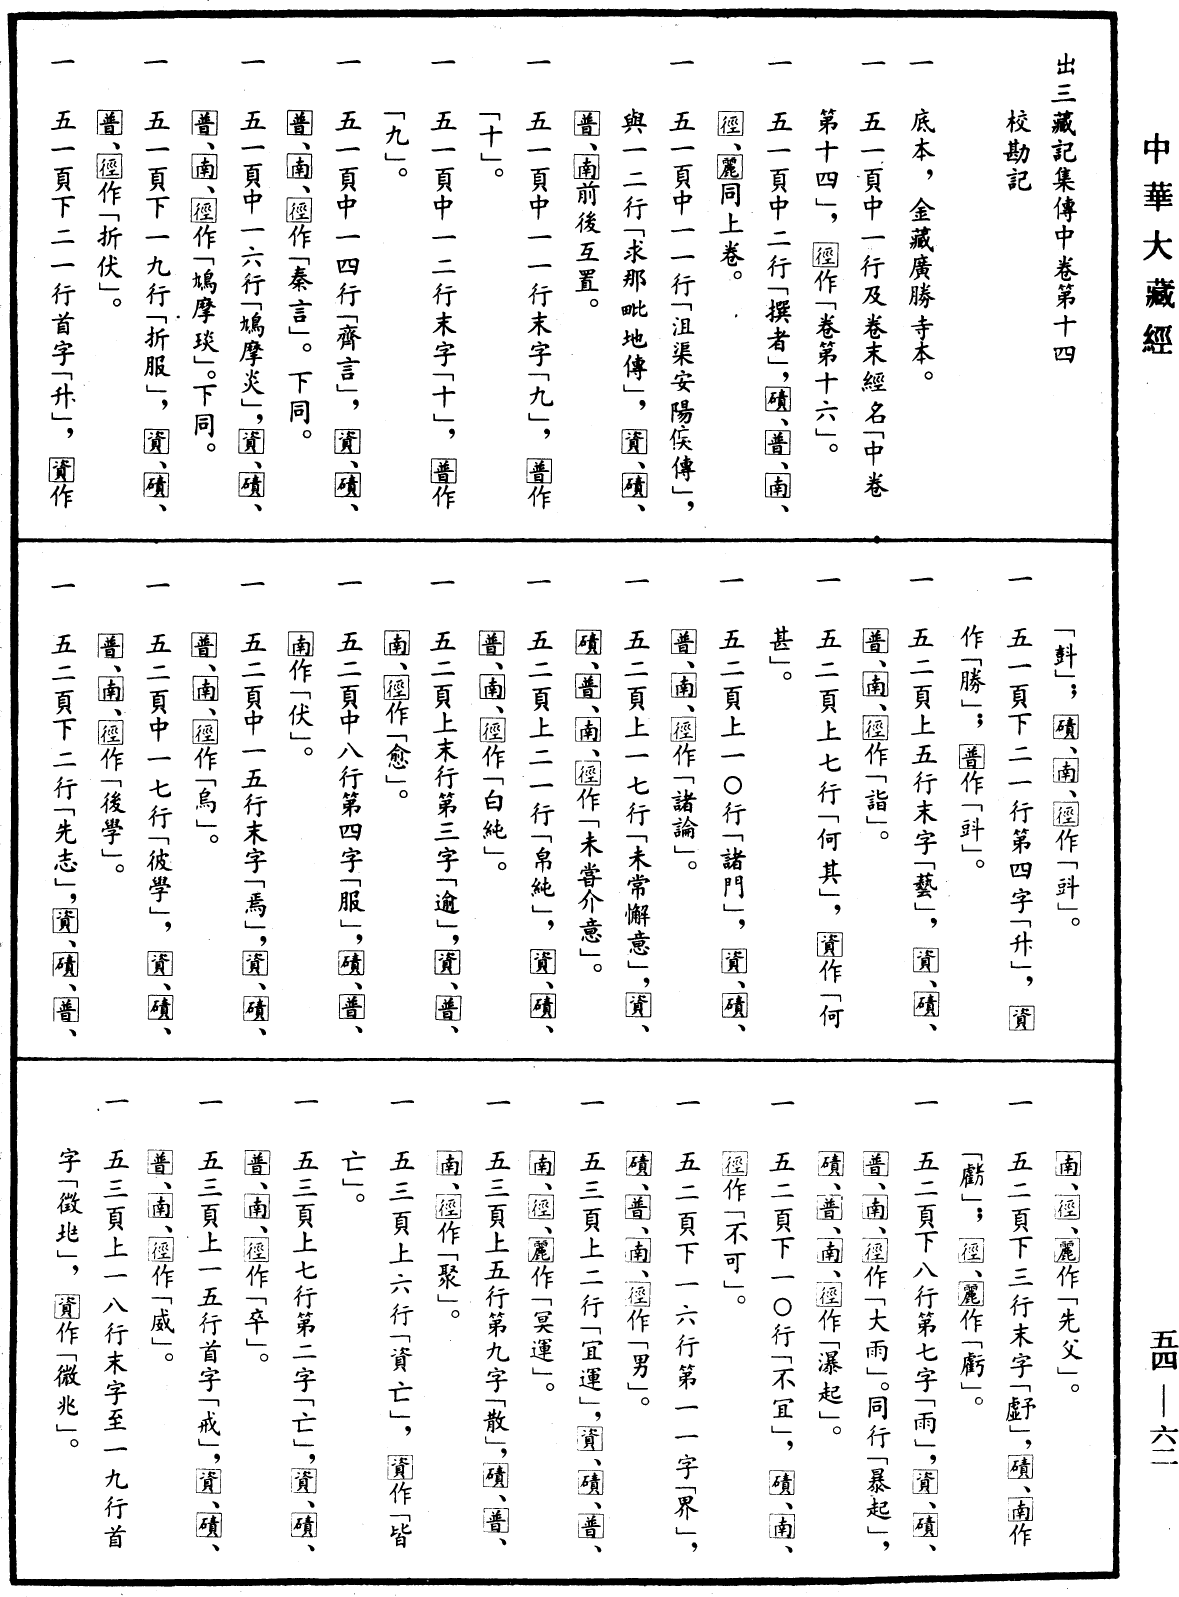 中華大藏經
五四—六二
出三藏記集傳中卷第十四
校勘記
一　底本，金藏廣勝寺本。
一　五一頁中一行及卷末經名「中卷
第十四」，徑作「卷第十六」。
一　五一頁中二行「撰者」，磧、普、南、
徑、麗同上卷。
一　五一頁中一一行「沮渠安陽侯傳」，
與一二行「求那毗地傳」，資、磧、
普、南前後互置。
一　五一頁中一一行末字「九」，普作
「十」。
一　五一頁中一二行末字「十」，普作
「九」。
一　五一頁中一四行「齊言」，資、磧、
普、南、徑作「秦言」。下同。
一　五一頁中一六行「鳩摩炎」，資、磧、
普、南、徑作「鳩摩琰」。下同。
一　五一頁下一九行「折服」，資、磧、
普、徑作「折伏」。
一　五一頁下二一行首字「升」，資作
「㪷」；磧、南、徑作「斗」。
一　五一頁下二一行第四字「升」，資
作「勝」；普作「斗」。
一　五二頁上五行末字「藝」，資、磧、
普、南、徑作「詣」。
一　五二頁上七行「何其」，資作「何
甚」。
一　五二頁上一〇行「諸門」，資、磧、
普、南、徑作「諸論」。
一　五二頁上一七行「未常懈意」，資、
磧、普、南、徑作「未嘗介意」。
一　五二頁上二一行「帛純」，資、磧、
普、南、徑作「白純」。
一　五二頁上末行第三字「逾」，資、普、
南、徑作「愈」。
一　五二頁中八行第四字「服」，磧、普、
南作「伏」。
一　五二頁中一五行末字「焉」，資、磧、
普、南、徑作「烏」。
一　五二頁中一七行「彼學」，資、磧、
普、南、徑作「後學」。
一　五二頁下二行「先志」，資、磧、普、
南、徑、麗作「先父」。
一　五二頁下三行末字「虧」，磧、南作
「虧」；徑、麗作「虧」。
一　五二頁下八行第七字「雨」，資、磧、
普、南、徑作「大雨」。同行「暴起」，
磧、普、南、徑作「瀑起」。
一　五二頁下一〇行「不宜」，磧、南、
徑作「不可」。
一　五二頁下一六行第一一字「界」，
磧、普、南、徑作「男」。
一　五三頁上二行「宜運」，資、磧、普、
南、徑、麗作「冥運」。
一　五三頁上五行第九字「散」，磧、普、
南、徑作「聚」。
一　五三頁上六行「資亡」，資作「皆
亡」。
一　五三頁上七行第二字「亡」，資、磧、
普、南、徑作「卒」。
一　五三頁上一五行首字「戒」，資、磧、
普、南、徑作「威」。
一　五三頁上一八行末字至一九行首
字「徵兆」，資作「微兆」。